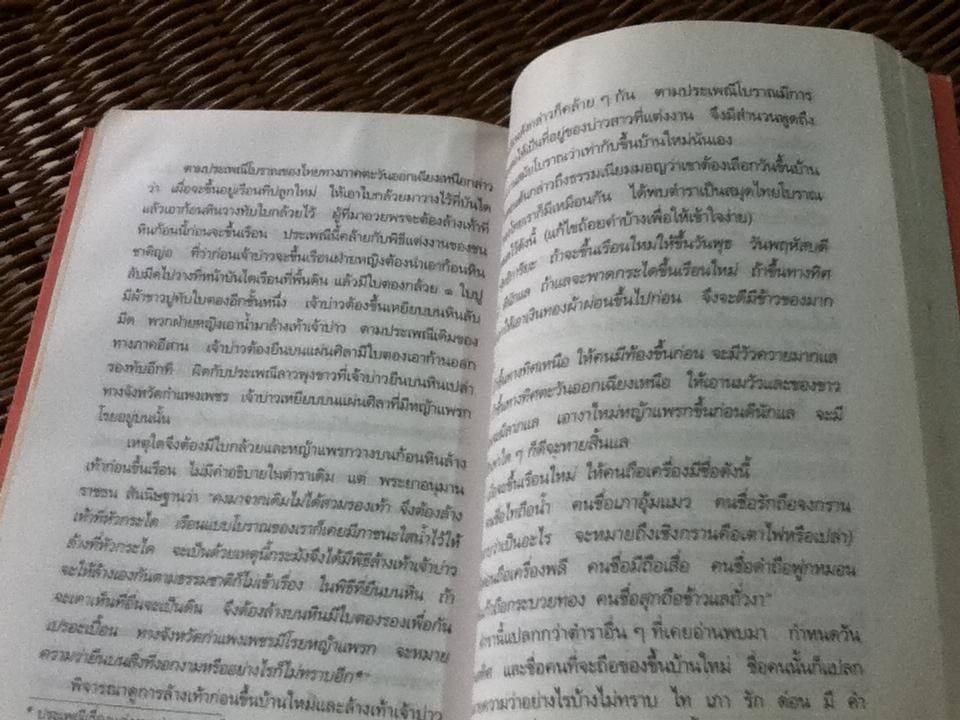 ตามประเพณีโบราณของไทยทางภาคตะวันออกเฉียงเหนือกล่าว
ว่า เมื่อจะขึ้นอยู่เรือนที่ปลูกใหม่ ให้เอาใบกล้วยมาวางไว้ที่บันได
แล้วเอาก้อนหินวางทับใบกล้วยไว้ ผู้ที่มาอวยพรจะต้องล้างเท้าที่
หินก้อนนี้ก่อนจะขึ้นเรือน ประเพณีนี้คล้ายกับพิธีแต่งงานของชน
ชาติญ้อ ที่ว่าก่อนเจ้าบ่าวจะขึ้นเรือนฝ่ายหญิงต้องนำเอาก้อนหิน
ลับมีดไปวางที่หน้าบันไดเรือนที่พื้นดิน แล้วมีใบตองกล้วย ๑ ใบปู
มีผ้าขาวปูทับใบตองอีกชั้นหนึ่ง เจ้าบ่าวต้องขึ้นเหยียบบนหินลับ
มีด พวกฝ่ายหญิงเอาน้ำมาล้างเท้าเจ้าบ่าว ตามประเพณีเดิมของ
ทางภาคอีสาน เจ้าบ่าวต้องยืนบนแผ่นศิลามีใบตองเอาก้านออก
รองทับอีกที ผิดกับประเพณีลาวพุงขาวที่เจ้าบ่าวยืนบนหินเปล่า
ทางจังหวัดกำแพงเพชร เจ้าบ่าวเหยียบบนแผ่นศิลาที่มีหญ้าแพรก
โรยอยู่บนนั้น
เหตุใดจึงต้องมีใบกล้วยและหญ้าแพรกวางบนก้อนหินล้าง
เท้าก่อนขึ้นเรือน ไม่มีคำอธิบายในตำราเดิม แต่ พระยาอนุมาน
ราชธน สันนิษฐานว่า "คงมาจากเดิมไม่ได้สวมรองเท้า จึงต้องล้าง
เท้าที่หัวกระได เรือนแบบโบราณของเราก็เคยมีภาชนะใส่น้ำไว้ให้
ล้างที่หัวกระได จะเป็นด้วยเหตุนี้กระมังจึงได้มีพิธีล้างเท้าเจ้าบ่าว
จะให้ล้างเองกันตามธรรมชาติก็ไม่เข้าเรื่อง ในพิธีที่ยืนบนหิน ถ้า
จะเดาเห็นที่อื่นจะเป็นดิน จึงต้องล้างบนหินมีใบตองรองเพื่อกัน
เปรอะเปื้อน ทางจังหวัดกำแพงเพชรมีโรยหญ้าแพรก จะหมาย
ความว่ายืนบนสิ่งที่งอกงามหรืออย่างไรก็ไม่ทราบอีก*"
พิจารณาดูการล้างเท้าก่อนขึ้นบ้านใหม่และล้างเท้าเจ้าบ่าว
ดังกล่าวก็คล้าย ๆ กัน ตามประเพณีโบราณมีการ
ให้เป็นที่อยู่ของบ่าวสาวที่แต่งงาน จึงมีสำนวนพูดถึง
โบราณว่าเท่ากับขึ้นบ้านใหม่นั่นเอง
กล่าวถึงธรรมเนียมมอญว่าเขาต้องเลือกวันขึ้นบ้าน
เราก็มีเหมือนกัน ได้พบตำราเป็นสมุดไทยโบราณ
ไว้ดังนี้ (แก้ไขถ้อยคำบ้างเพื่อให้เข้าใจง่าย)
ถ้าจะขึ้นเรือนใหม่ให้ขึ้นวันพุธ วันพฤหัสบดี
ดีนักแล ถ้าแลจะพาดกระไดขึ้นเรือนใหม่ ถ้าขึ้นทางทิศ
ให้เอาเงินทองผ้าผ่อนขึ้นไปก่อน จึงจะดีมีข้าวของมาก
ขึ้นทางทิศเหนือ ให้คนมีท้องขึ้นก่อน จะมีวัวควายมากแล
ขึ้นทางทิศตะวันออกเฉียงเหนือ ให้เอานมวัวและของขาว
ลาภแล เอางาใหม่หญ้าแพรกขึ้นก่อนดีนักแล จะมี
ใด ๆ ก็ดีจะหายสิ้นแล
จะขึ้นเรือนใหม่ ให้คนถือเครื่องมีชื่อดังนี้
ชื่อไทถือน้ำ คนชื่อเภาอุ้มแมว คนชื่อรักถือจงกราน
ว่าเป็นอะไร จะหมายถึงเชิงกรานคือเตาไฟหรือเปล่า)
ถือเครื่องพลี คนชื่อมีถือเสื่อ คนชื่อคำถือฟูกหมอน
ถือกระบวยทอง คนชื่อสุกถือข้าวแลถั่วงา"
นี้แปลกกว่าตำราอื่น ๆ ที่เคยอ่านพบมา กำหนดวัน
ทิศ และชื่อคนที่จะถือของขึ้นบ้านใหม่ ชื่อคนนั้นก็แปลก
ความว่าอย่างไรบ้างไม่ทราบ ไท เภา รัก ต่อน มี คำ